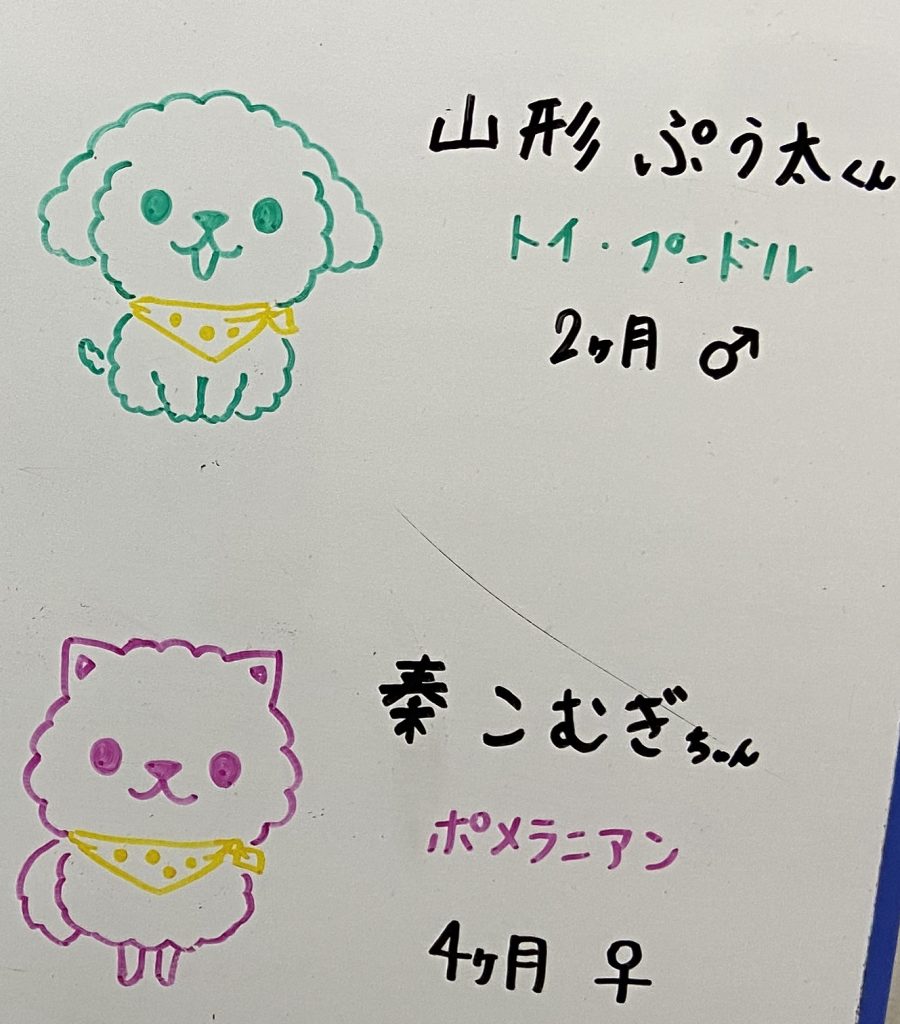 山形 ぷう太くん
トイ・プードル
2ヶ月 ♂
秦 こむぎちゃん
ポメラニアン
4ヶ月 ♀